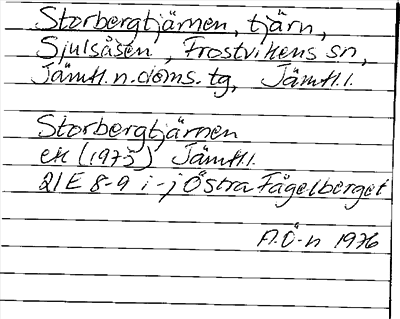 Storbergtjärnen, tjärn,
Sjulsåsen, Frostvikens sn,
Jämtl.n.doms.tg, Jämtl.l.
Storbergtjärnen
ek (1975) Jämtl.l.
21E 8-9 i-j Östra Fågelberget
A.Ö-n 1976